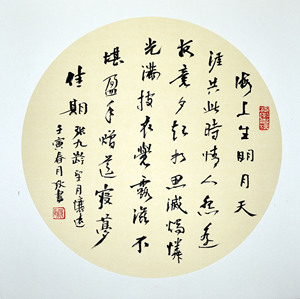 海上生明月天
涯共此時情人怨遙
夜竟夕起相思滅燭憐
光滿披衣覺露滋不
堪盈手贈還寢夢
佳期
張九齡望月懷遠
壬寅春月書